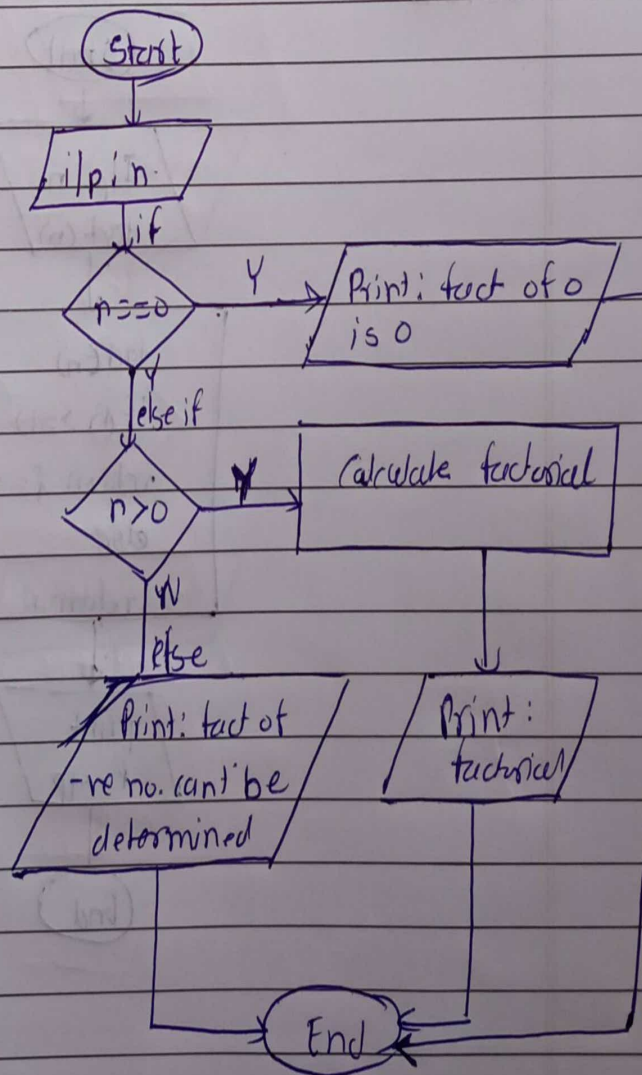 Start
i/p: n
if
n==0
Y
Print: fact of 0
is 0
Y
else if
n>0
Y
Calculate factorial
N
else
Print: fact of
-ve no. can't be
determined
Print:
factorial
End